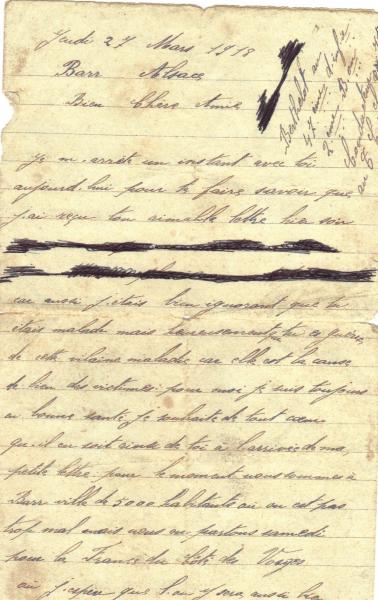 Jeudi 27 Mars 1918
Barr Alsace
Bien Chère Amie
Berthelot au
47 eme d'infe
2 eme Bon
Je m arrete un instant avec toi
aujourd.hui pour te faire savoir que
j'ai reçu ton aimable lettre hier soir
car aussi j'étais bien ignorant que tu
étais malade mais heureusement tu es guérie
de cette vilaine maladie car elle est la cause
de bien des victimes. pour moi je suis toujours
en bonne santé je souhaite de tout cœur
qu.il en soit ainsi de toi à l'arrivée de ma
petite lettre pour le moment nous sommes à
Barr ville de 5000 habitants ou on est pas
trop mal mais nous en partons samedi
pour la France du Coté des Vosges
ou j'espère que l'on y sera aussi